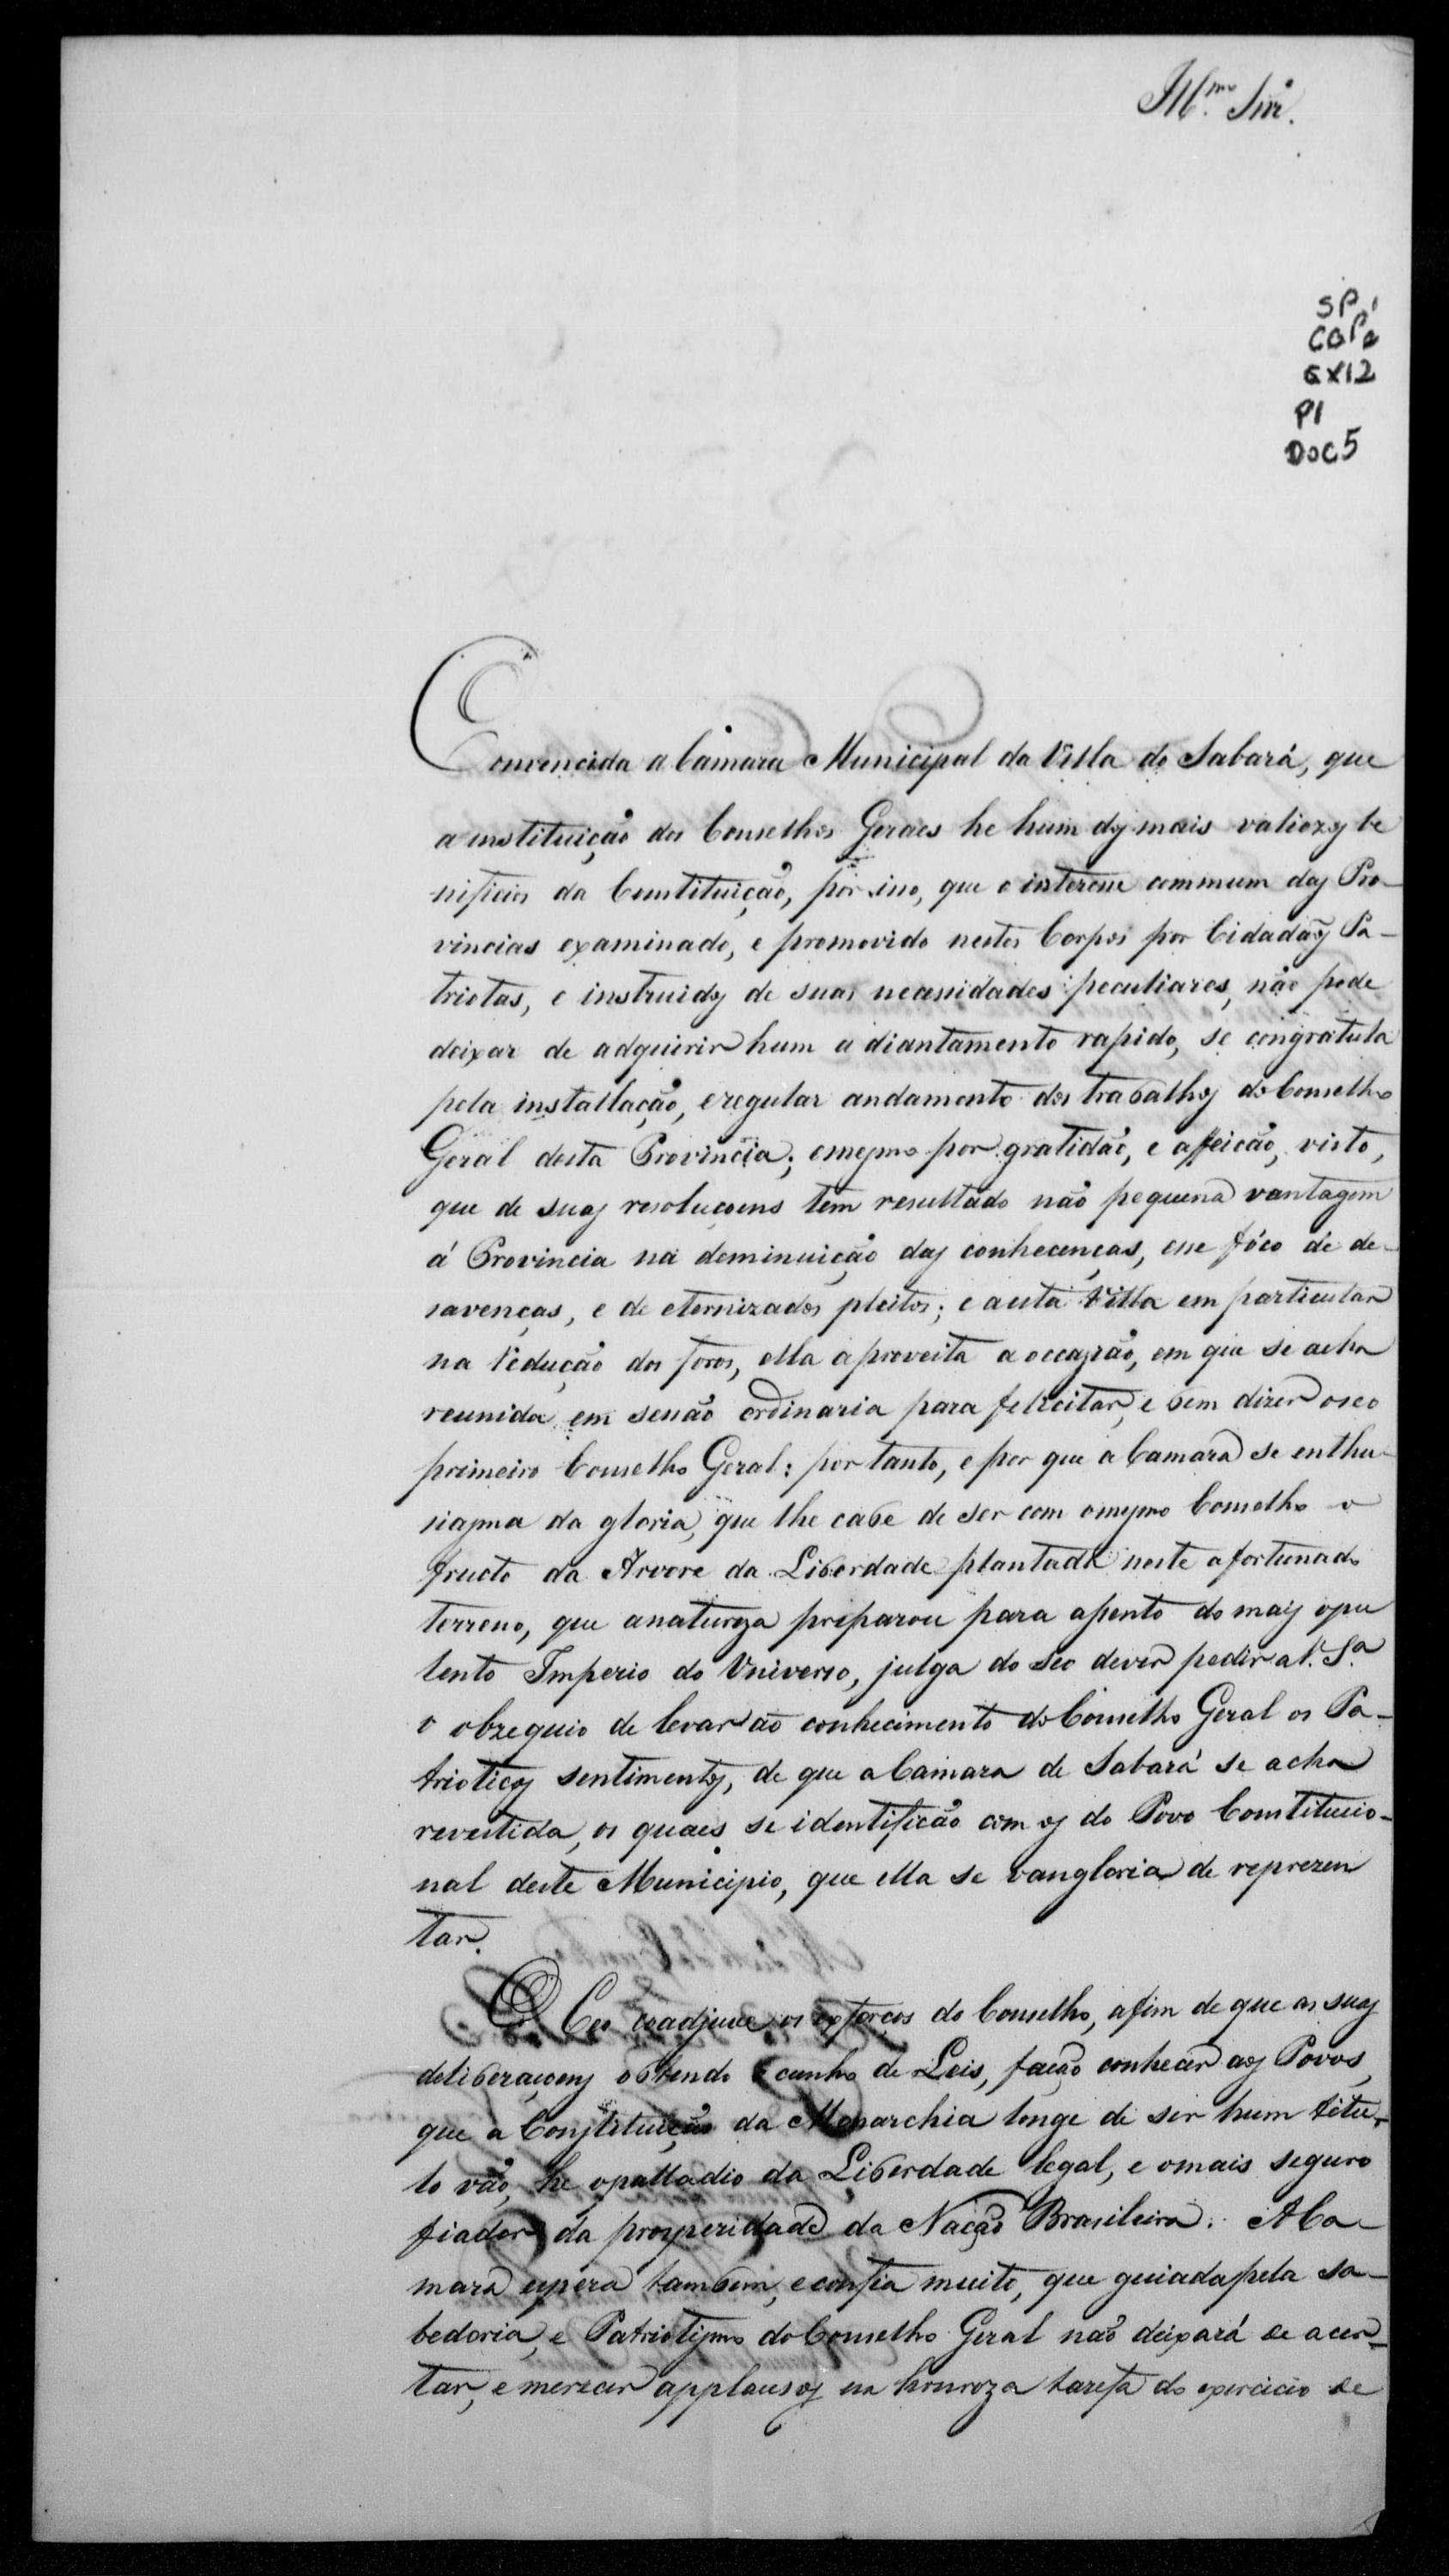 Ill.mo Snr.
SP.1
CGP2
CX12
P1
DOC5
Convencida a Câmara Municipal da Villa do Sabará, que
a instituição dos Conselhos Geraes he hum dos mais valiozos be
nificios da Constituição, por isso, que o interesse commum das Pro-
vincias examinado, e promovido nestes Corpos por Cidadãos Pa-
triotas, e instruidos de suas necessidades peculiares, não pode
deixar de adquirir hum adiantamento rapido, se congratula
pela installação, e regular andamento dos trabalhos do Conselho
Geral desta Provincia; e mesmo por gratidão, e affeicão, visto,
que de suas resoluçoens tem resultado não pequena vantagem
á Provincia na deminuição das conhecenças, esse fóco de de-
savenças, e de eternizados pleitos; e a esta Villa em particular
na redução dos foros, ella aproveita a occazião, em que se acha
reunida em sessão ordinaria para felicitar, e bem dizer o seo
primeiro Conselho Geral: por tanto, e por que a Camara se enthu-
siasma da gloria, que lhe cabe de ser com o mesmo Conselho o
fructo da Arvore da Liberdade plantada neste afortunado
terreno, que a natureza preparou para assento do mais opu
lento Imperio do Universo, julga do seo dever pedir a V. S.a
o obzequio de levar ao conhecimento do Conselho Geral os Pa-
trioticos sentimentos, de que a Camara de Sabará se acha
revestida, os quaes se identificão com os do Povo Constitucio-
nal deste Municipio, que ella se vangloria de reprezen
tar.
O Ceo coadjuve os esforços do Conselho, afim de que as suas
deliberaçoens obtendo o cunho de Leis, fação conhecer aos Povos,
que a Constituição da Monarchia longe de ser hum titu-
lo vão, he o palladio da Liberdade legal, e o mais seguro
fiador da prosperidade da Nação Brasileira. A Ca-
mara espera tambem, e confia muito, que guiada pela sa-
bedoria, e Patriotismo do Conselho Geral não deixará de acer-
tar, e merecer applausos na honroza tarefa do exercicio de